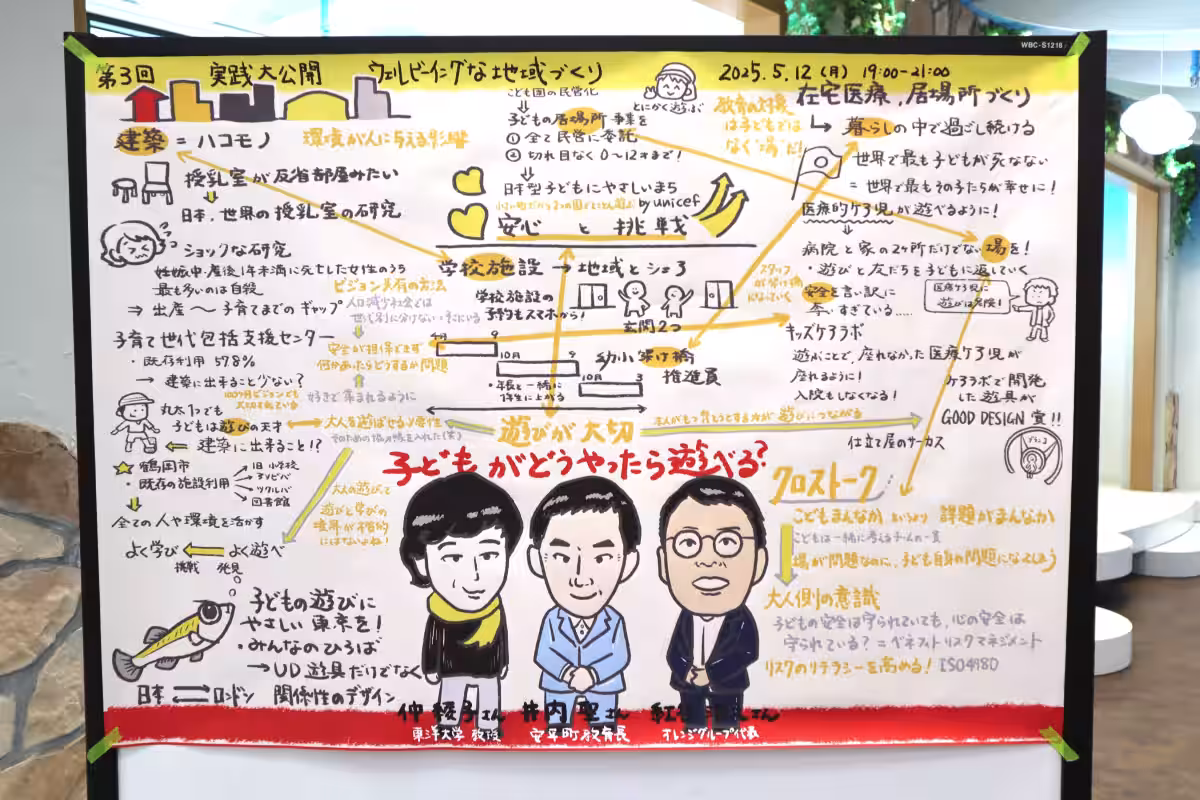 WBC-S1218
第3回 実践大公開 ウェルビーイングな地域づくり
2025.5.12(月) 19:00-21:00
建築=ハコモノ 環境が人に与える影響
授乳室が反省部屋みたい
日本、世界の授乳室の研究
ショックな研究
妊娠中・産後1年未満に死亡した女性のうち
最も多いのは自殺
⇒ 出産〜子育てまでのギャップ
子育て世代包括支援センター
・既存利用 57.8%
→ 建築に出来ること少ない?
100か月ビジョンでも
大切にされている
丸太1つでも
子どもは遊びの天才
建築に出来ること!?
鶴岡市
・既存の施設利用
旧小学校
図書館
全ての人や環境を活かす
よく学び ← よく遊べ
挑戦 発見
子どもの遊びに
やさしい東京を!
・みんなのひろば
→ UD遊具だけでなく
日本 ⇄ ロンドン 関係性のデザイン
こども園の民営化
子どもの居場所事業を
① 全て民営に委託
② 切れ目なく0〜12才まで!
日本型子どもにやさしいまち
by unicef
安心と挑戦
とにかく遊ぶ
学校施設 → 地域とシェア
学校施設の
予約もスマホから!
玄関2つ
ビジョン共有の方法
人口減少社会では
世代別に分けない
安全が担保できます
何かあったらどうするが問題
好きで集まれるように
4月 9
10月 9
10月 3
・年長と一緒に
幼小架け橋
推進員
スタッフ
大人を遊ばせる必要性
遊びが大切
遊びにつながる
子どもがどうやったら遊べる?
大人の遊びって
遊びと学びの
境界が本格的
にはないよね!
教育の対象
は子どもでは
なく“場”だ!
在宅医療、居場所づくり
↳ 暮らしの中で過ごし続ける
世界で最も子どもが死なない
=世界で最もその子たちが幸せに!
医療的ケア児が遊べるように!
病院と家の2ヶ所だけでない場を!
・遊びと友だちを子どもに返していく
安全を言い訳に
奪いすぎている……
医療ケア児に
遊びは危険!
キッズケアラボ
遊ぶことで、座れなかった医療ケア児が
座れるように!
入院もしなくなる!
ケアラボで開発
した遊具が
GOOD DESIGN 賞!!
仕立て屋のサーカス
クロストーク
こどもまんなかというより 課題がまんなか
こどもは一緒に考えるチームの一員
場が問題なのに、子ども自身の問題になってしまう
大人側の意識
子どもの安全は守られていても、心の安全は
守られている?=ベネフィットリスクマネジメント
リスクのリテラシーを高める! ISO4980
仲 綾子さん
東洋大学 教授
井内 聖さん
安平町教育長
オレンジグループ代表